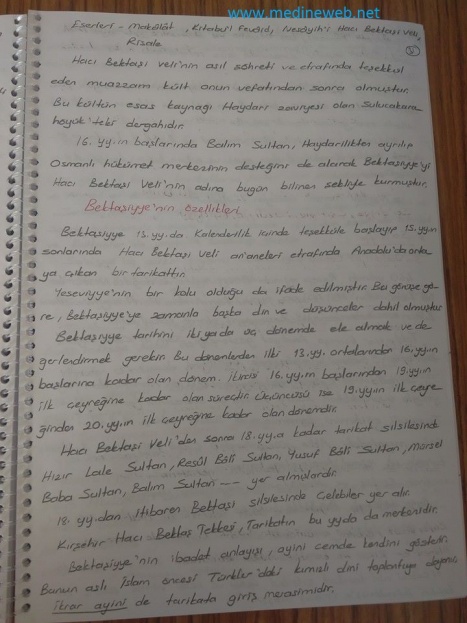 www.medineweb.net
Eserleri - Makâlât, Kitabu'l Fevâid, Nesâyih-i Hacı Bektaşi Veli,
Risale
Hacı Bektaşi Veli'nin asıl şöhreti ve etrafında teşekkül
eden muazzam kült onun vefatından sonra olmuştur.
Bu kültün esas kaynağı Haydari zaviyesi olan Sulucakara-
höyük tekke dergahıdır.
16. yy.ın başlarında Balım Sultan, Haydarilikten ayrılıp
Osmanlı hükümet merkezinin desteğini de alarak Bektaşiyye'yi
Hacı Bektaşi Veli'nin adına bugün bilinen şekliyle kurmuştur.
Bektaşiyye'nin özellikleri
Bektaşiyye 13. yy.da Kalenderilik içinde teşekküle başlayıp 15. yy.ın
sonlarında Hacı Bektaşi Veli an'aneleri etrafında Anadolu'da orta-
ya çıkan bir tarikattır.
Yeseviyye'nin bir kolu olduğu da ifade edilmiştir. Bu görüşe gö-
re, Bektaşiyye'ye zamanla başka din ve düşünceler dahil olmuştur
Bektaşiyye tarihini iki ya da üç dönemde ele almak ve de-
ğerlendirmek gerekir. Bu dönemlerden ilki 13. yy. ortalarından 16. yy.ın
başlarına kadar olan dönem. İkincisi 16. yy.ın başlarından 19. yy.ın
ilk çeyreğine kadar olan süreçtir. Üçüncüsü ise 19. yy.ın ilk çeyre-
ğinden 20. yy.ın ilk çeyreğine kadar olan dönemdir.
Hacı Bektaşi Veli'den sonra 18. yy.a kadar tarikat silsilesinde
Hızır Lale Sultan, Resûl Bâli Sultan, Yusuf Bâli Sultan, Mürsel
Baba Sultan, Balım Sultan -- yer almışlardır.
18. yy.dan itibaren Bektaşi silsilesinde Çelebiler yer alır.
Kırşehir Hacı Bektaş Tekkesi, Tarikatın bu yy.da da merkezidir.
Bektaşiyye'nin ibadet anlayışı, ayini cemde kendini gösterir.
Bunun aslı İslam öncesi Türkler'deki kımızlı dini toplantıya dayanır.
İkrar ayini de tarikata giriş merasimidir.